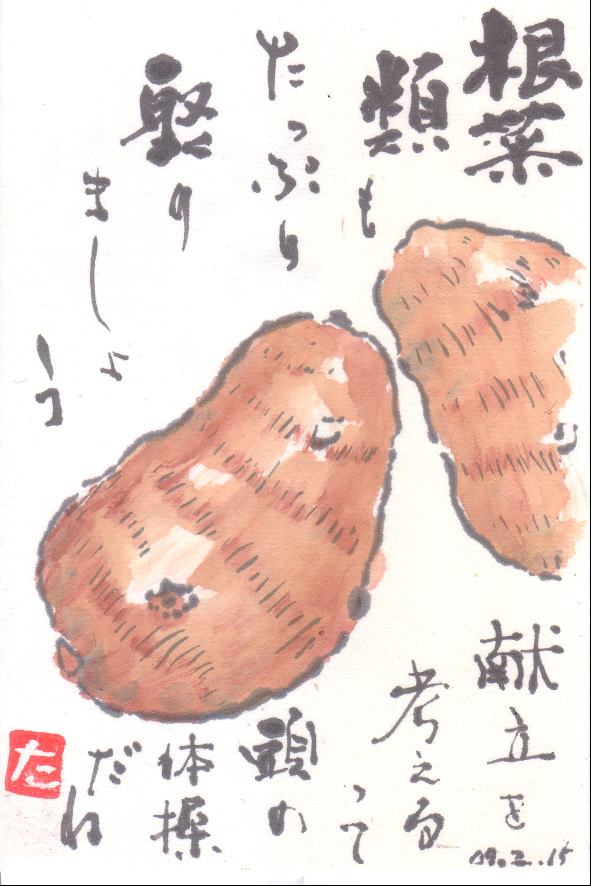 根菜
類も
たっぷり
り
ましょう
献立を
考える
って
頭の
体操
だね
09.2.15
た